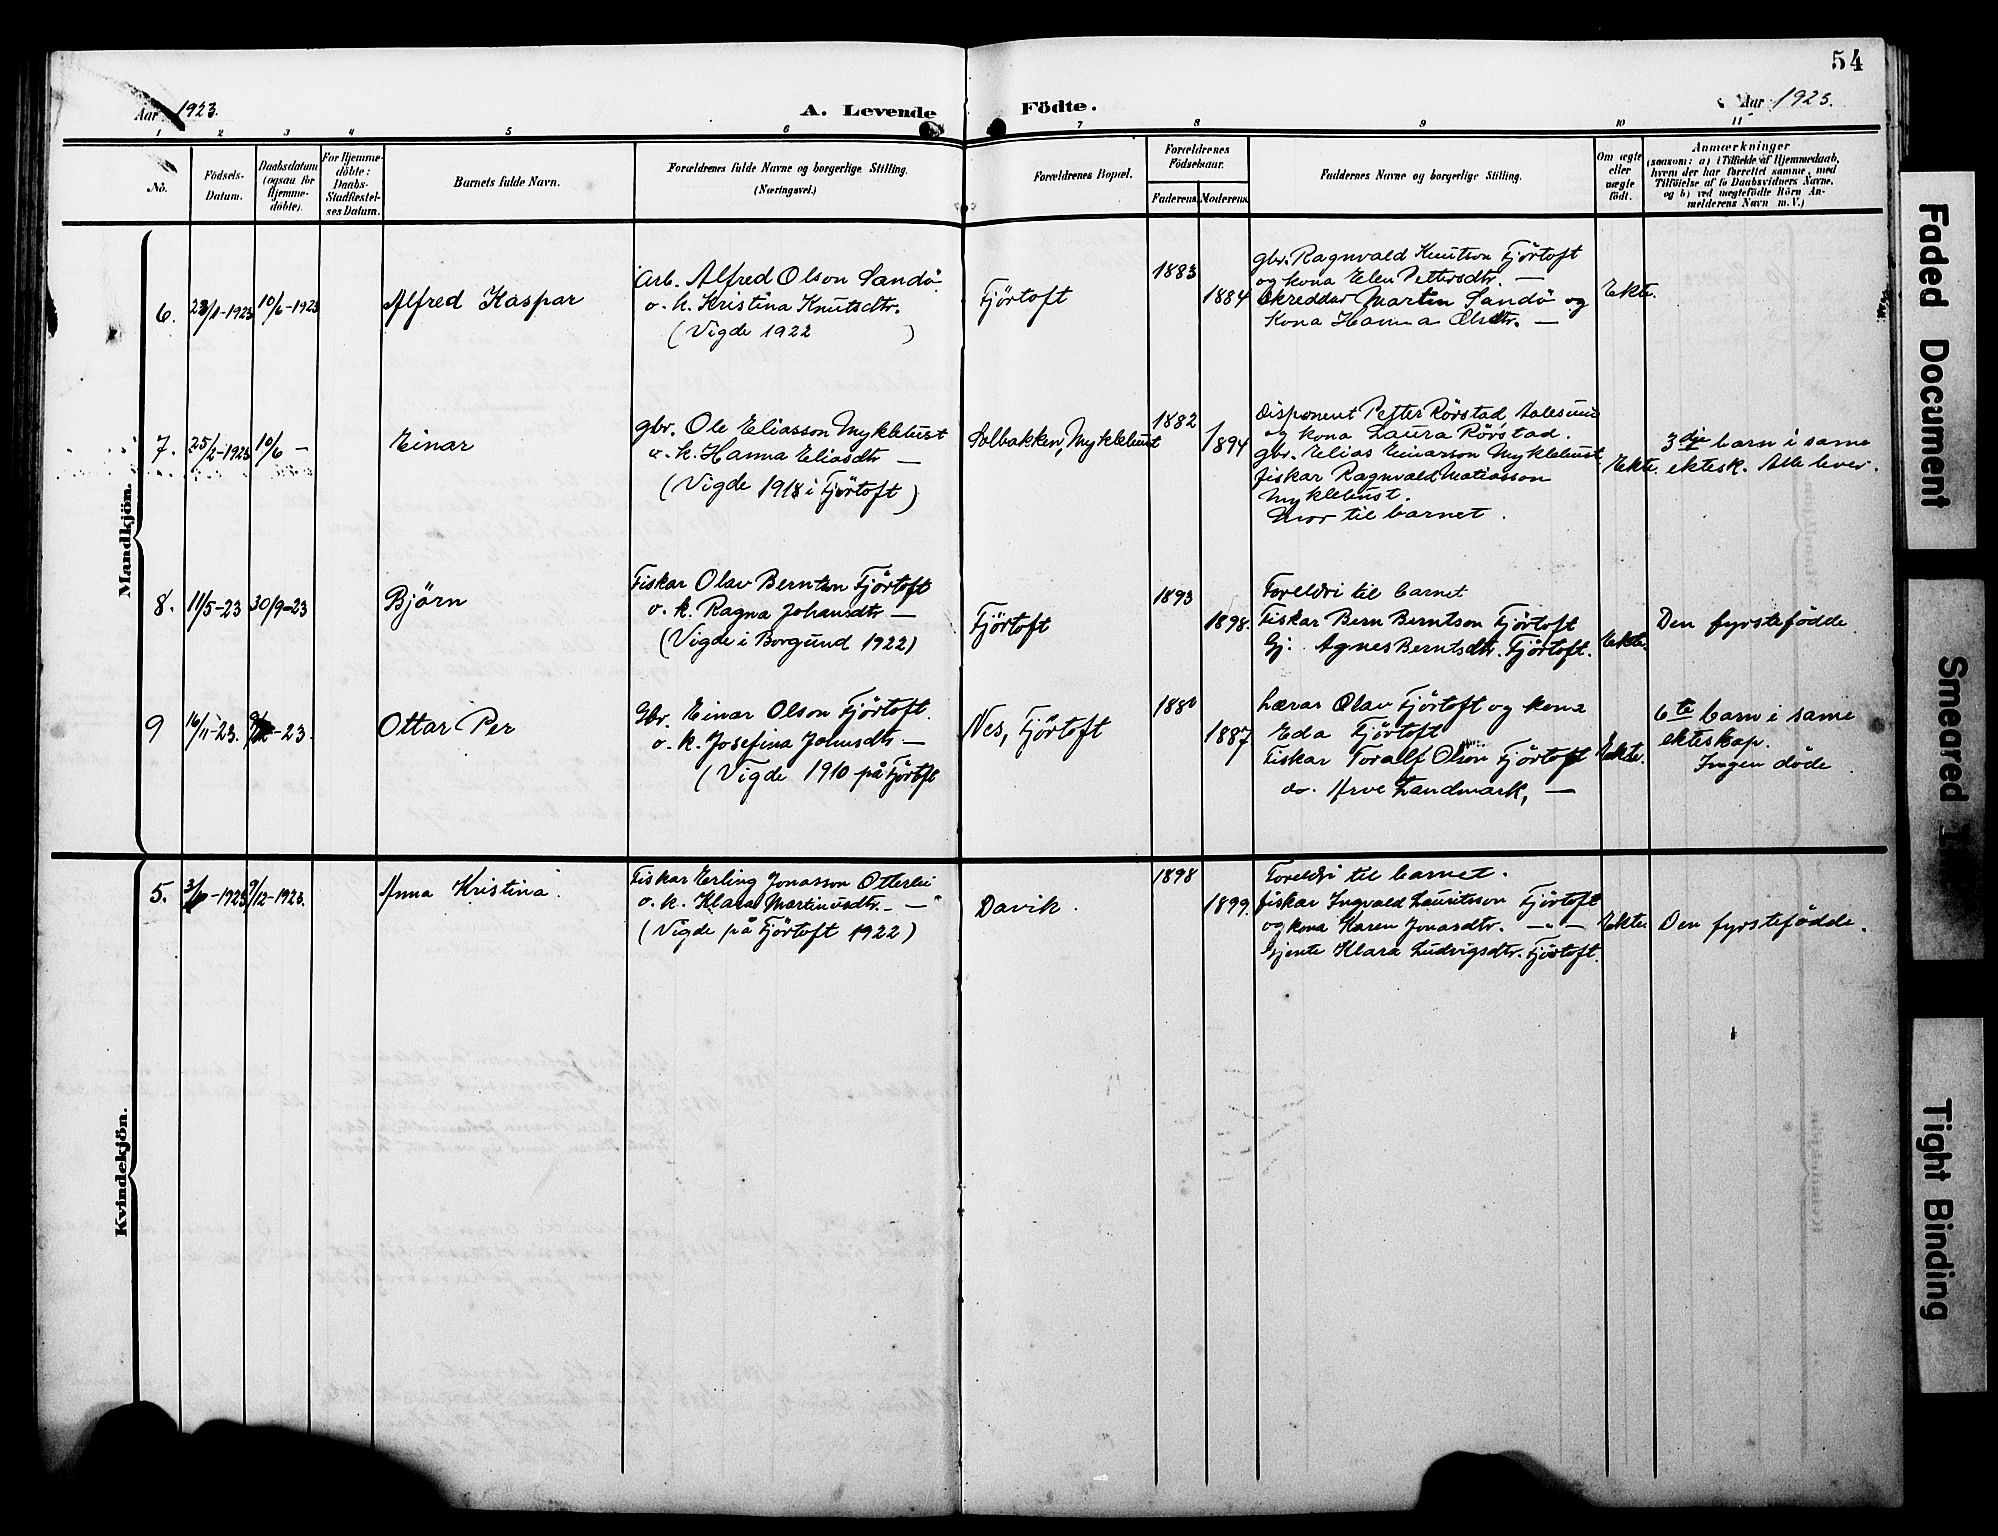 54
Aar 1923.
A. Levende Födte.
Aar 1923.
1 2 3 4 5 6 7 8 9 10 11
No.
Födsels-
Datum.
Daabsdatum
(ogsaa för
Hjemme-
döbte).
For Hjemme-
döbte:
Daabs-
Stadfæstel-
ses Datum.
Barnets fulde Navn.
Forældrenes fulde Navne og borgerlige Stilling.
(Næringsvei.)
Forældrenes Bopæl.
Forældrenes
Födselsaar.
Faderens. Moderens.
Faddernes Navne og borgerlige Stilling.
Om ægte
eller
uægte
födt.
Anmærkninger
(saasom: a) i Tilfælde af Hjemmedaab,
hvem der har forrettet samme, med
Tilföielse af to Daabsvidners Navne,
og b) ved uægtefödte Börn An-
melderens Navn m. V.)
Mandkjön.
6.
10/6-1923
Alfred Kaspar
Arb. Alfred Olson Sandö
o. k. Kristina Knutsdtr.
(Vigde 1922 )
Fjörtoft
1883
1884
gbr. Ragnvald Knutson Fjörtoft
og kona Elen Pettersdtr. —
Skreddar Martin Sandö og
Kona Hanna Olsdtr. —
Ekte.
7.
25/2-1923
10/6 —
Einar
gbr. Ole Eliasson Myklebust
o. k. Hanna Eliasdtr —
(Vigde 1918 i Fjörtoft)
Solbakken, Myklebust
1882
1894
Disponent Petter Rörstad Aalesund
og kona Laura Rörstad.
gbr. Elias Einarson Myklebust
fiskar Ragnvald Matiasson
Myklebust.
Mor til barnet.
Ekte.
3dje barn i same
ektesk. Alle lever.
8.
11/5-23
30/9-23
Björn
Fiskar Olav Berntson Fjörtoft
o. k. Ragna Johansdtr —
(Vigde i Borgund 1922)
Fjörtoft
1893
1898.
Foreldri til barnet
Fiskar Bern Berntson Fjörtoft
Gj. Agnes Berntsdtr. Fjörtoft.
Ekte.
Den fyrstefödde
9
16/11-23.
-23.
Ottar Per
Gbr. Einar Olson Fjörtoft.
o. k. Josefina Johnsdtr —
(Vigde 1910 på Fjörtoft
Nes, Fjörtoft
1887
Lærar Olav Fjörtoft og kona
Eda Fjörtoft
Fiskar Toralf Olson Fjörtoft
do. Arve Landmark, —
Ekte.
6te barn i same
ekteskap.
Ingen döde.
Kvindekjön.
5.
-1923
9/12-1923.
Anna Kristina
Fiskar Erling Jonasson Otterlei
o. k. Klara Martinusdtr. — "
(Vigde på Fjörtoft 1922)
Davik.
1898
1899.
Foreldri til barnet.
fiskar Ingvald Lauritsson Fjörtoft
og kona Karen Jonasdtr. —"—
Gjente Klara Ludvigsdtr. Fjörtoft.
Ekte.
Den fyrstefödde.
Faded Document
Smeared
Tight Binding